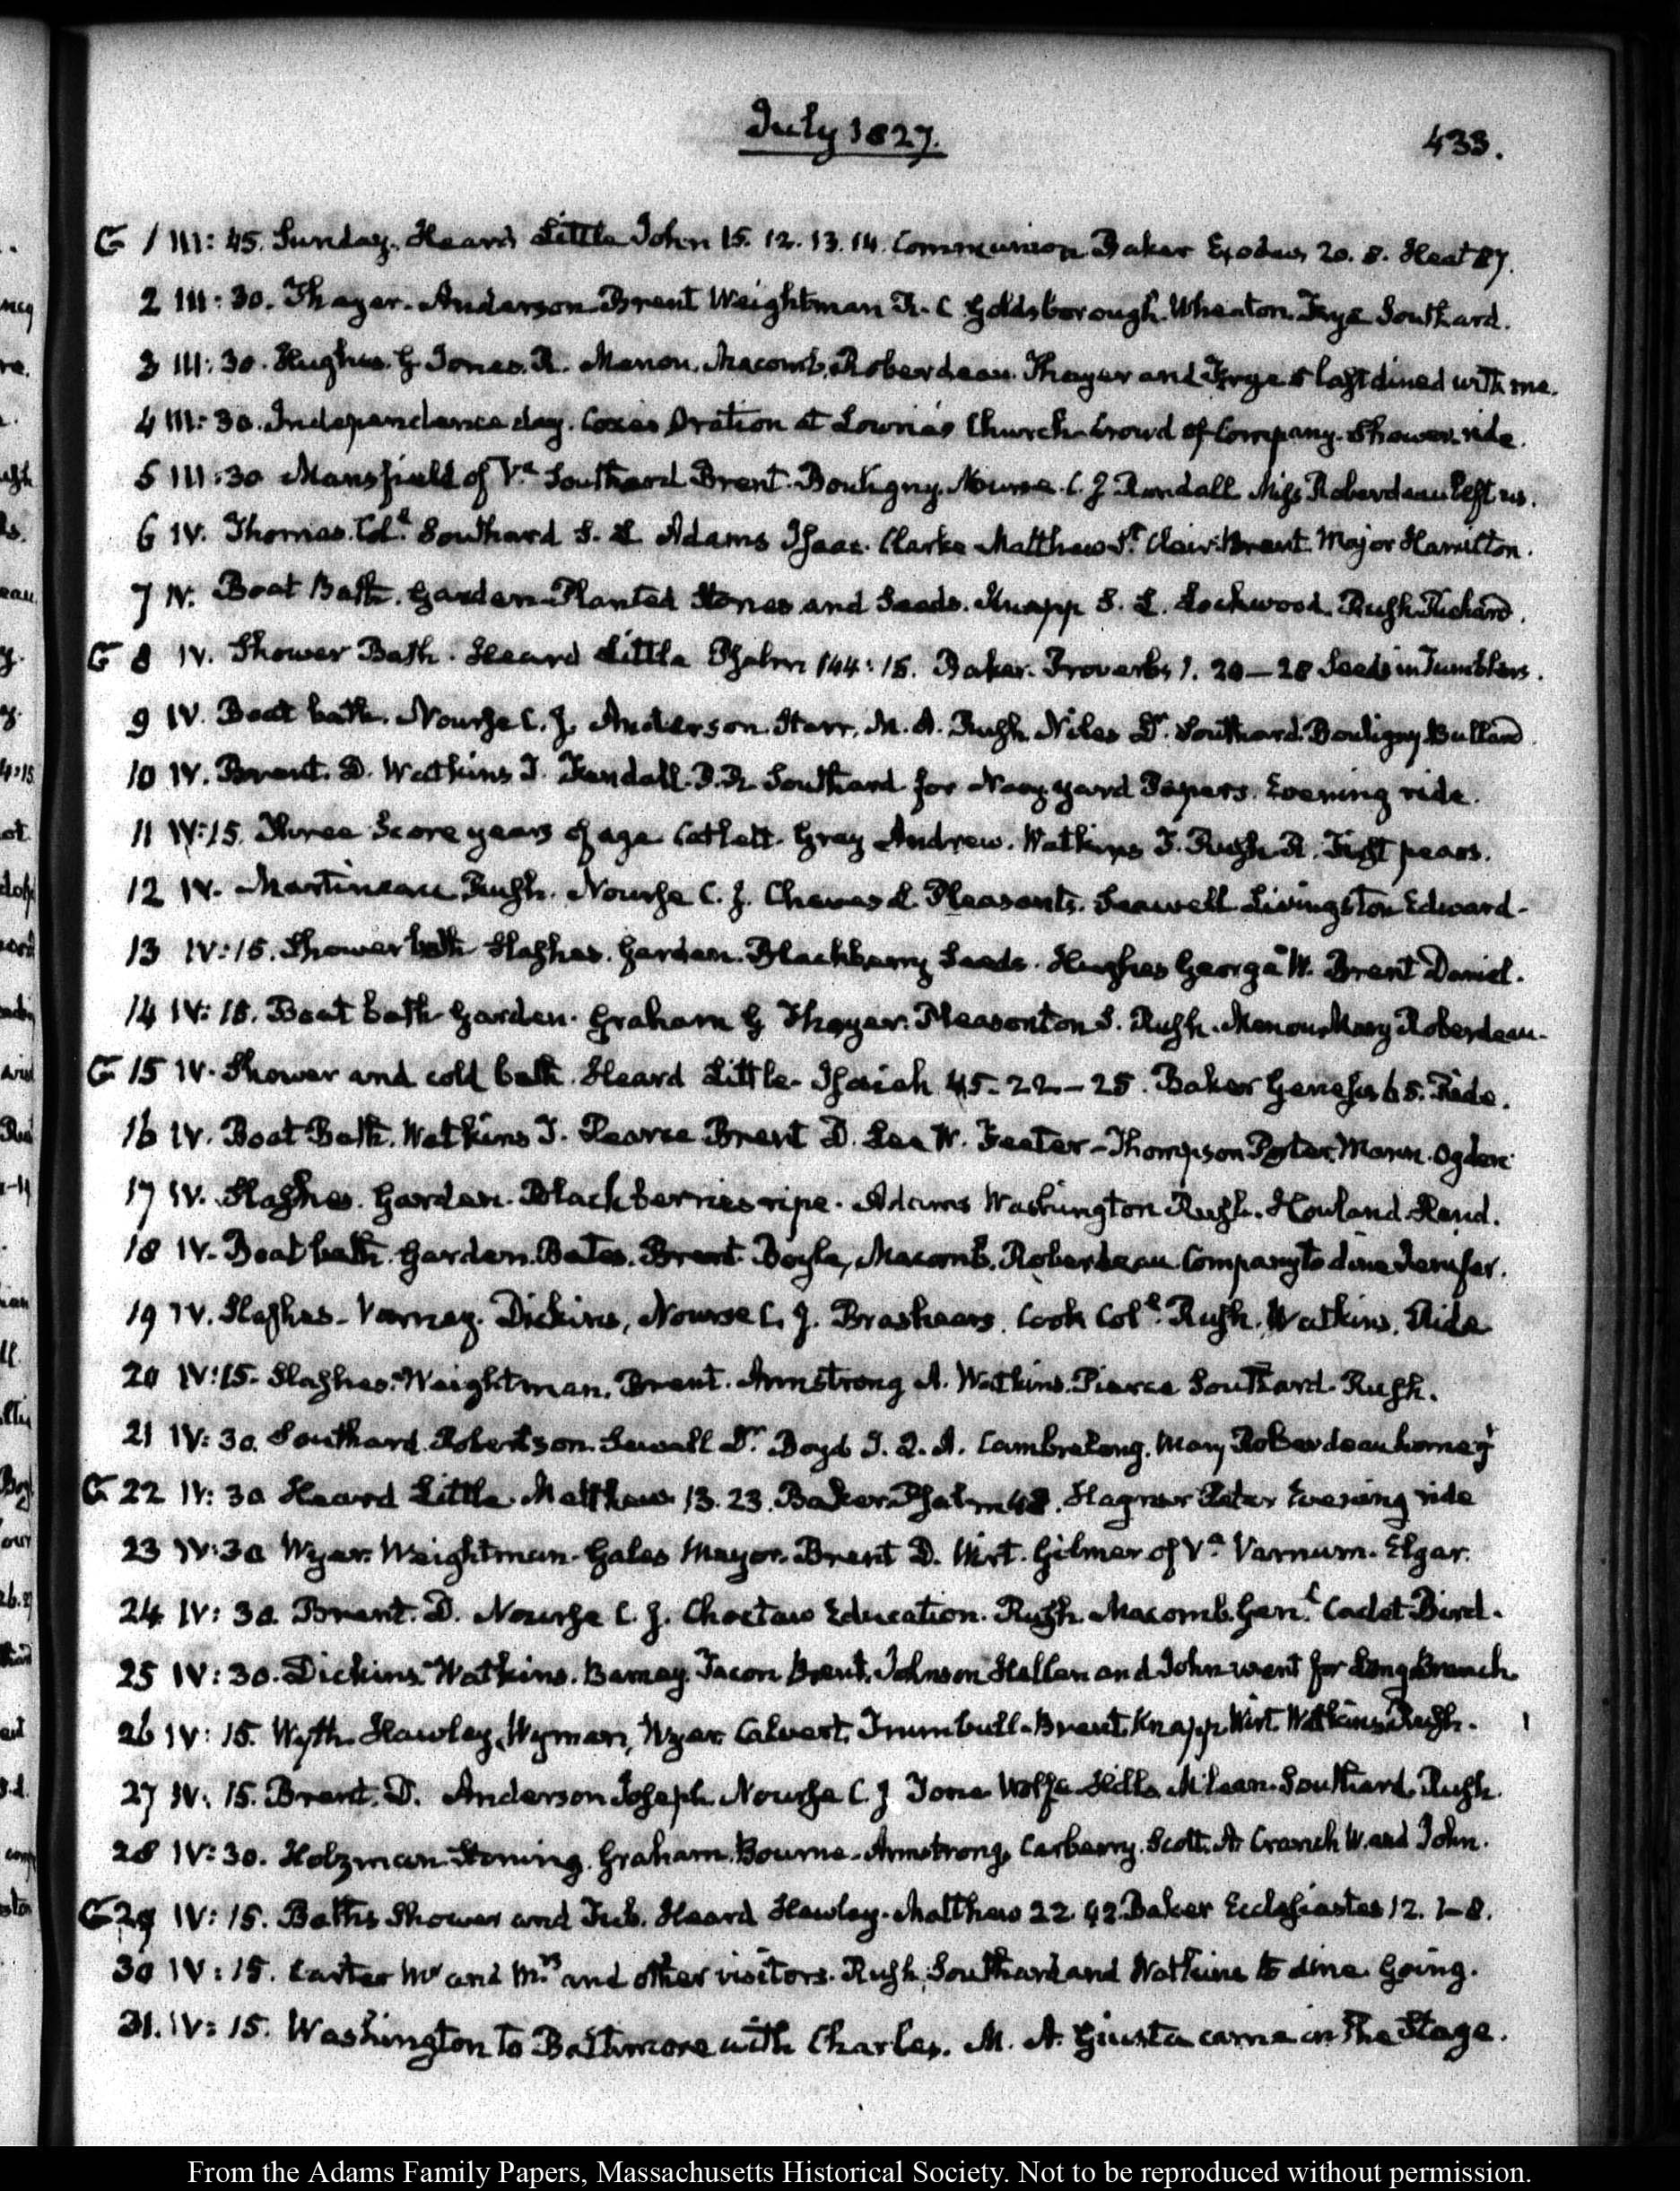 July 1827.
433.
G 1 III: 45. Sunday. Heard Little John 15. 12. 13. 14. Communion Baker Exodus 20. 8. Heat 87.
2 III: 30. Thayer. Anderson. Brent Weightman R. C Goldsborough. Wheaton. Frye Southard.
3 III: 30. Hughes. G. Jones. R. Menou. Macomb. Roberdeau. Thayer and Frye last dined with me.
4 III: 30. Independence day. Coxe's Oration at Lowrie's Church. Crowd of Company. Shower. ride.
5 III: 30 Mansfield of Va Southard Brent. Bouligny. Nourse. C. J Randall Miss Roberdeau left us.
6 IV. Thomas. Southard S. L Adams Isaac. Clarke Matthew St Clair. Brent. Major Hamilton.
7 IV. Boat Bath. Garden. Planted Stones and Seeds. Knapp S. L. Lockwood. Rush Richard.
G 8 IV. Shower Bath. Heard Little Psalm 144: 15. Baker. Proverbs 1. 20-28 Seeds in Tumblers.
9 IV. Boat bath. Nourse C. J. Anderson. Starr. M. A. Rush. Niles Dr. Southard. Bouligny Bullard
10 IV. Brent. D. Watkins T. Fendall. P. R Southard for Navy yard Papers. Evening ride.
11 IV: 15. Three Score years of age Catlett. Gray Andrew. Watkins T. Rush R. First pears.
12 IV. Martineau Rush. Nourse C. J. Cheves L Pleasants. Seawell Livingston Edward.
13 IV: 15. Shower bath Slashes. Garden. Blackberry Seeds. Hughes George W. Brent Daniel.
14 IV: 15. Boat bath Garden. Graham G Thayer. Pleasonton S. Rush. Menou. Mary Roberdeau.
G 15 IV. Shower and cold bath. Heard Little. Isaiah 45. 22-25. Baker Genesis 6 5. Ride.
16 IV. Boat Bath. Watkins T. Pearce Brent D. Lee W. Feater. Thompson Porter. Mann. Ogden
17 IV. Slashes. Garden. Blackberries ripe. Adams Washington Rush. Howland. Rand.
18 IV. Boat bath. Garden. Bates. Brent. Boyle, Macomb. Roberdeau Company to dine
19 IV. Slashes. Varney. Dickins, Nourse C. J. Brashears. Cook Rush. Watkins. Ride
20 IV: 15. Slashes. Weightman. Brent. Armstrong A. Watkins. Pierce Southard. Rush.
21 IV: 30. Southard. Robertson. Sewall Dr Boyd J. Q. A. Cambreleng. Mary Roberdeau home
G 22 IV: 30 Heard Little Matthew 13. 23. Baker Psalm 48. Hagner Peter Evening ride
23 IV: 30 Wyer. Weightman. Gales Mayor. Brent D. Wirt. Gilmer of Va Varnum. Elgar.
24 IV: 30. Brent. D. Nourse C. J. Choctaw Education. Rush Macomb. Genl. Cadet Bird.
25 IV: 30. Dickins Watkins. Barney. Facon Brent. Johnson Hellen and John went for Long Branch.
26 IV: 15. Wyth. Hawley. Wyman, Wyer Calvert. Trumbull. Brent. Knapp Wirt. Watkins Rush.
27 IV: 15. Brent. D. Anderson Joseph. Nourse C. J Jone Wolfe Hills. McLean. Southard. Rush.
28 IV: 30. Holzman. Graham. Bourne. Armstrong. Carberry. Scott. A. Cranch W. and John.
G 29 IV: 15. Baths Shower and Tub. Heard Hawley. Matthew 22. 42. Baker Ecclesiastes 12. 1-8.
30 IV: 15. Carter Mr and Mrs and other visitors. Rush, Southard and Watkins to dine. Going.
31. IV: 15. Washington to Baltimore with Charles. M. A. Giusta came in the Stage.
From the Adams Family Papers, Massachusetts Historical Society. Not to be reproduced without permission.